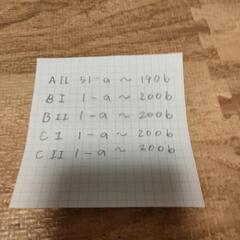 A II 51-a ~ 190b
B I 1-a ~ 200b
B II 1-a ~ 200b
C I 1-a ~ 200b
C II 1-a ~ 200b